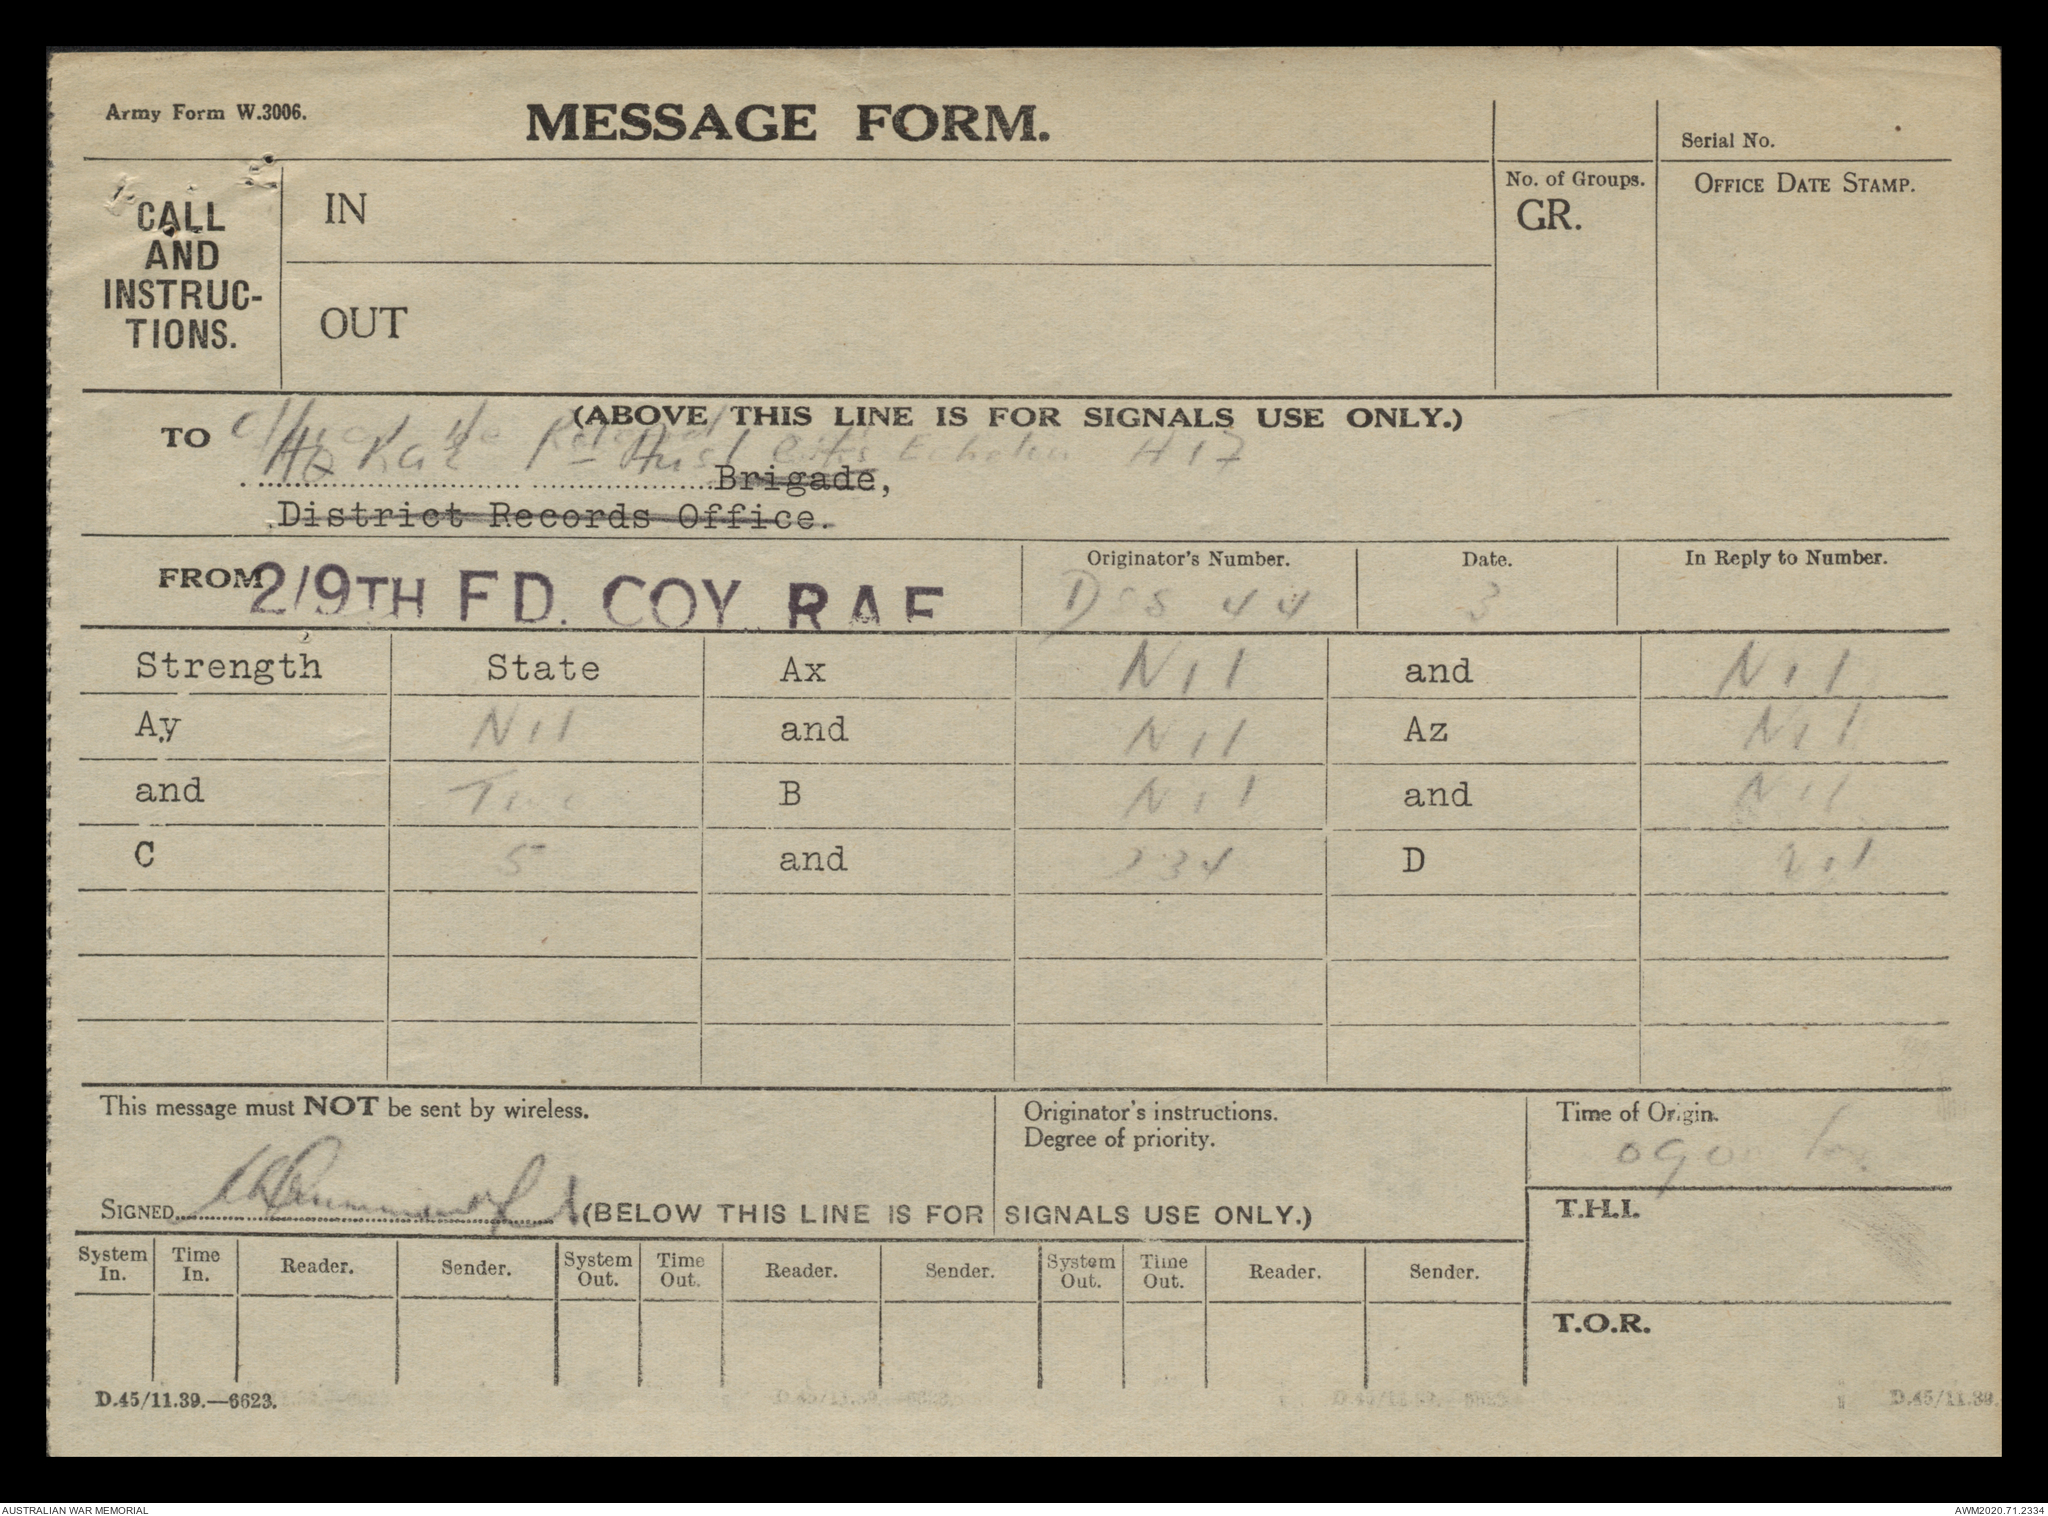 Army Form W.3006.
MESSAGE FORM.
Serial No.
CALL AND INSTRUC-TIONS.
IN
No. of Groups.
GR.
OFFICE DATE STAMP.
OUT
(ABOVE THIS LINE IS FOR SIGNALS USE ONLY.)
TO
HQ RAE 1 Aust Echelon H17
Brigade,
District Records Office.
FROM 2/9TH FD. COY. RAE
Originator's Number.
44
Date.
3
In Reply to Number.
Strength State Ax Nil and Nil
Ay Nil and Nil Az Nil
and B Nil and Nil
C 5 and 234 D Nil
This message must NOT be sent by wireless.
Originator's instructions.
Degree of priority.
Time of Origin.
0900 hrs
SIGNED
(BELOW THIS LINE IS FOR SIGNALS USE ONLY.)
T.H.I.
System In. Time In. Reader. Sender. System Out. Time Out. Reader. Sender. System Out. Time Out. Reader. Sender.
T.O.R.
D.45/11.39.—6623.
D.45/11.39.
AUSTRALIAN WAR MEMORIAL
AWM2020.71.2334